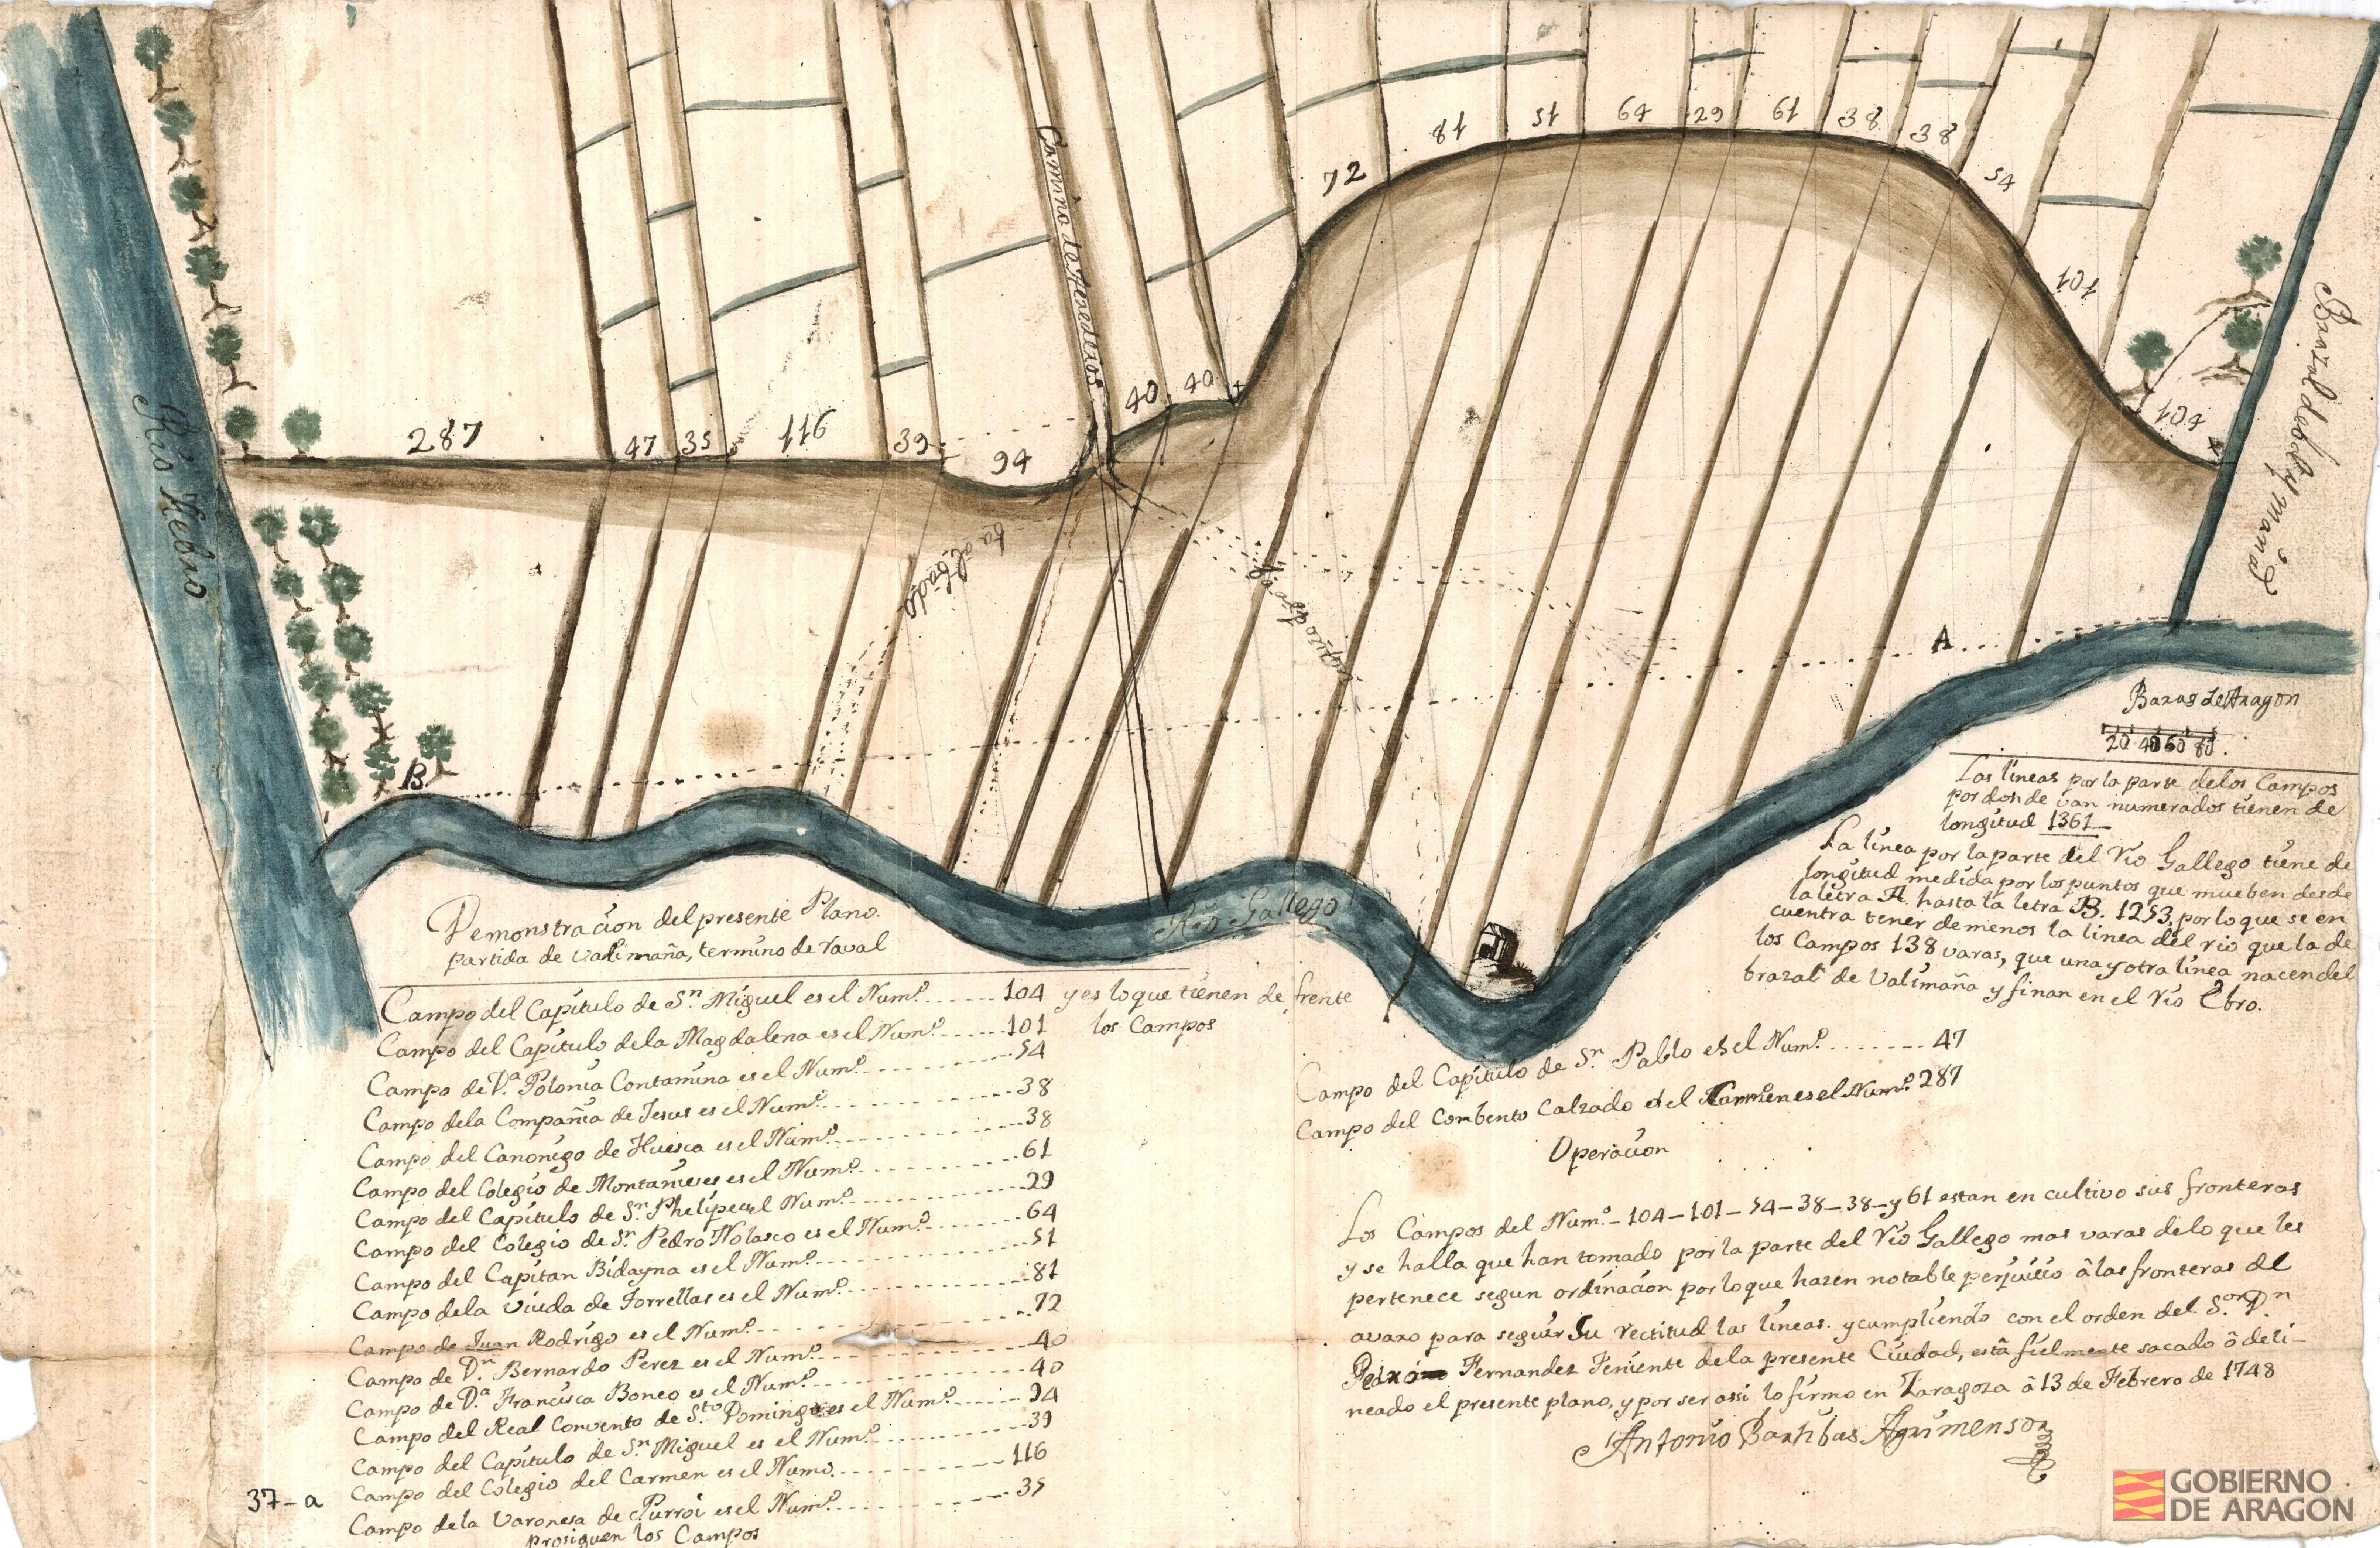 Rio Hebro
287
47
35
116
39
94
40
40
72
81
51
64
29
61
38
38
54
101
104
Camino de Heredeños
Rio Gallego
A
B
Baras de Aragon
20 40 60 80
Las lineas por la parte delos Campos
por donde van numerados tienen de
longitud 1361
La linea por la parte del Rio Gallego tiene de
longitud medida por los puntos que mueben desde
la letra A. hasta la letra B. 1253, por lo que se en
cuentra tener demenos la linea del rio que la de
los Campos 138 varas, que una y otra linea nacen del
brazal de Valimaña y finan en el Rio Ebro.
Demonstracion del presente Plano.
partida de Valimaña, termino de raval
Campo del Capitulo de Sn. Miguel es el Numo. 104 y es lo que tienen de frente
los Campos
Campo del Capitulo dela Magdalena es el Numo. 101
Campo de Da. Polonia Contamina es el Numo. 54
Campo dela Compañia de Jesus es el Numo. 38
Campo del Canonigo de Huesca es el Numo. 38
Campo del Colegio de Montañeses es el Numo. 61
Campo del Capitulo de Sn. Phelipe es el Numo. 29
Campo del Colegio de Sn. Pedro Nolasco es el Numo. 64
Campo del Capitan Bidayna es el Numo. 51
Campo dela Viuda de Torrellas es el Numo. 81
Campo de Juan Rodrigo es el Numo. 72
Campo de Dn. Bernardo Perez es el Numo. 40
Campo de Da. Francisca Boneo es el Numo. 40
Campo del Real Convento de Sto. Domingo es el Numo. 94
Campo del Capitulo de Sn. Miguel es el Numo. 39
Campo del Colegio del Carmen es el Numo. 116
Campo dela Varonesa de Purroi es el Numo. 35
prosiguen los Campos
37-a
Campo del Capitulo de Sn. Pablo es el Numo. 47
Campo del Combento Calzado del Carmen es el Numo. 287
Operacion
Los Campos del Numo.-104-101-54-38-38-y 61 estan en cultivo sus fronteras
y se halla que han tomado por la parte del Rio Gallego mas varas delo que les
pertenece segun ordinacion por lo que hazen notable perjuicio â las fronteras del
avaxo para seguir Su rectitud las lineas. y cumpliendo con el orden del Sor. Dn.
Pedro Fernandez Teniente dela presente Ciudad, està fielmente sacado ô deli-
neado el presente plano, y por ser assi lo firmo en Zaragoza â 13 de Febrero de 1748
Antonio Agrimensor
GOBIERNO
DE ARAGON